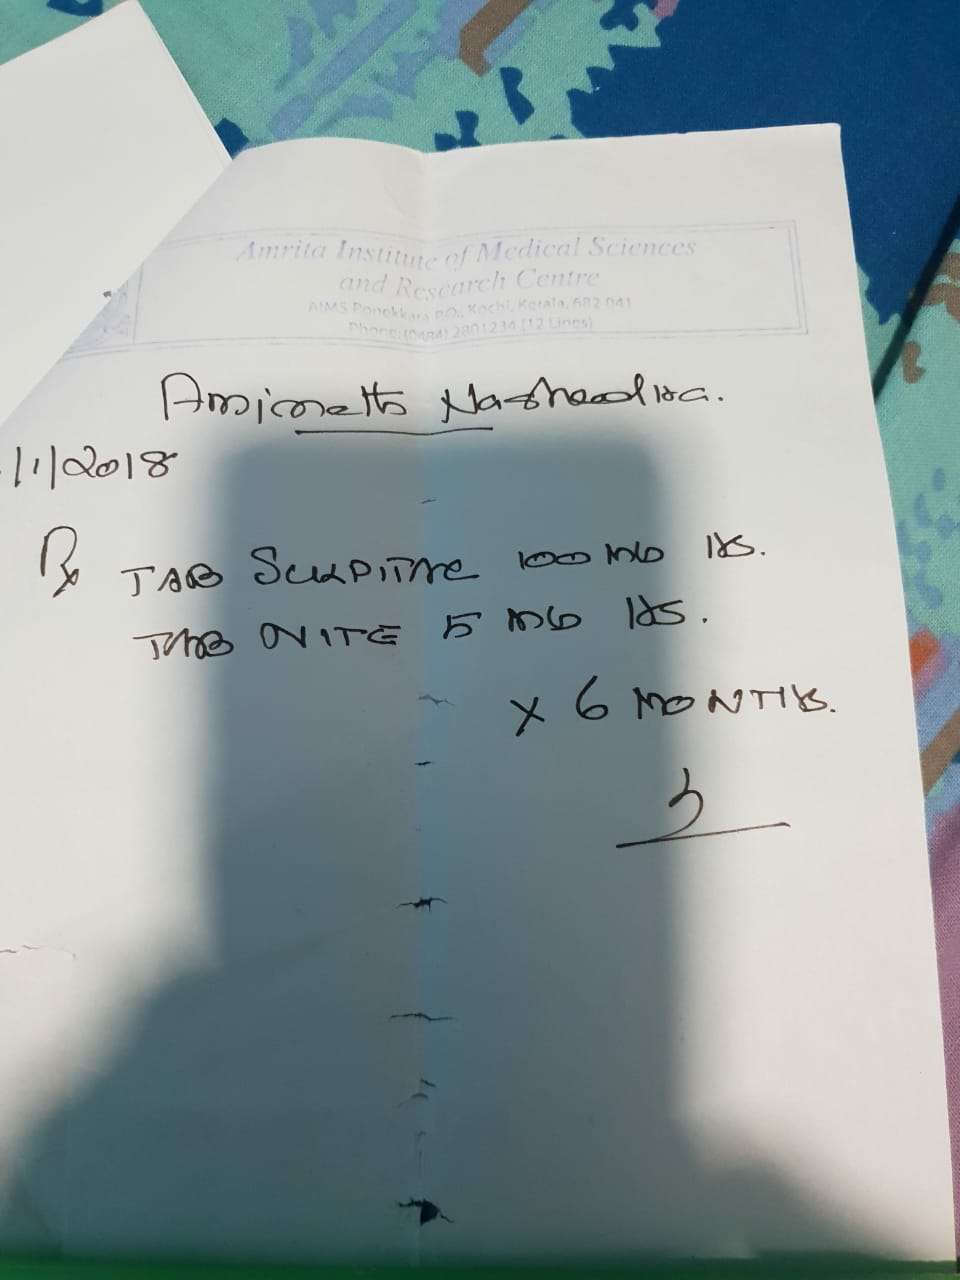 Amrita Institute of Medical Sciences
and Research Centre
AIMS Ponekkara P.O., Kochi, Kerala, 682 041
Phone: (0484) 2801234 (12 Lines)
/1/2018
Rx
TAB 100 MG HS.
TAB NITE 5 MG HS.
x 6 MONTHS.